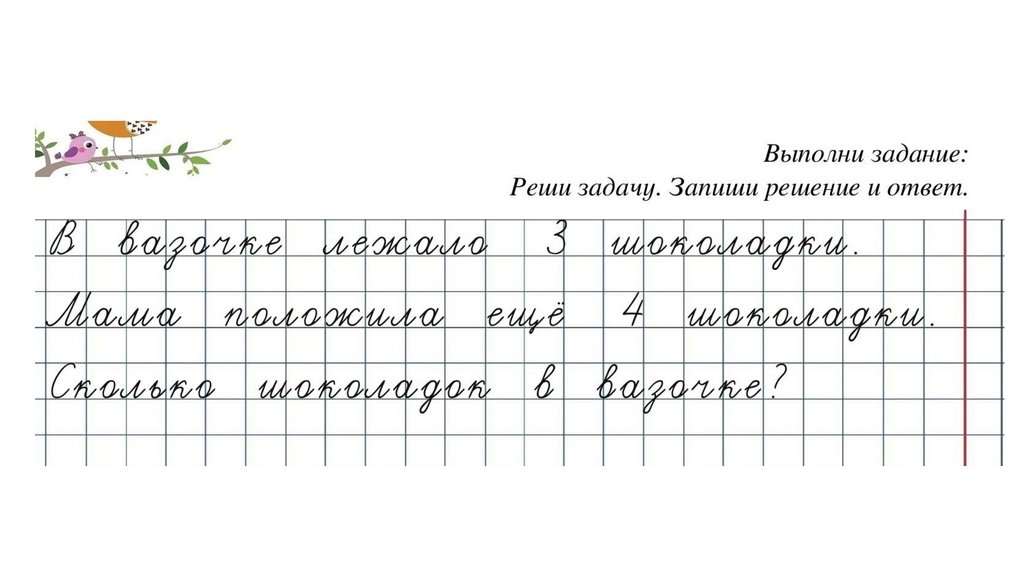 Выполни задание:
Реши задачу. Запиши решение и ответ.
В вазочке лежало 3 шоколадки.
Мама положила ещё 4 шоколадки.
Сколько шоколадок в вазочке?